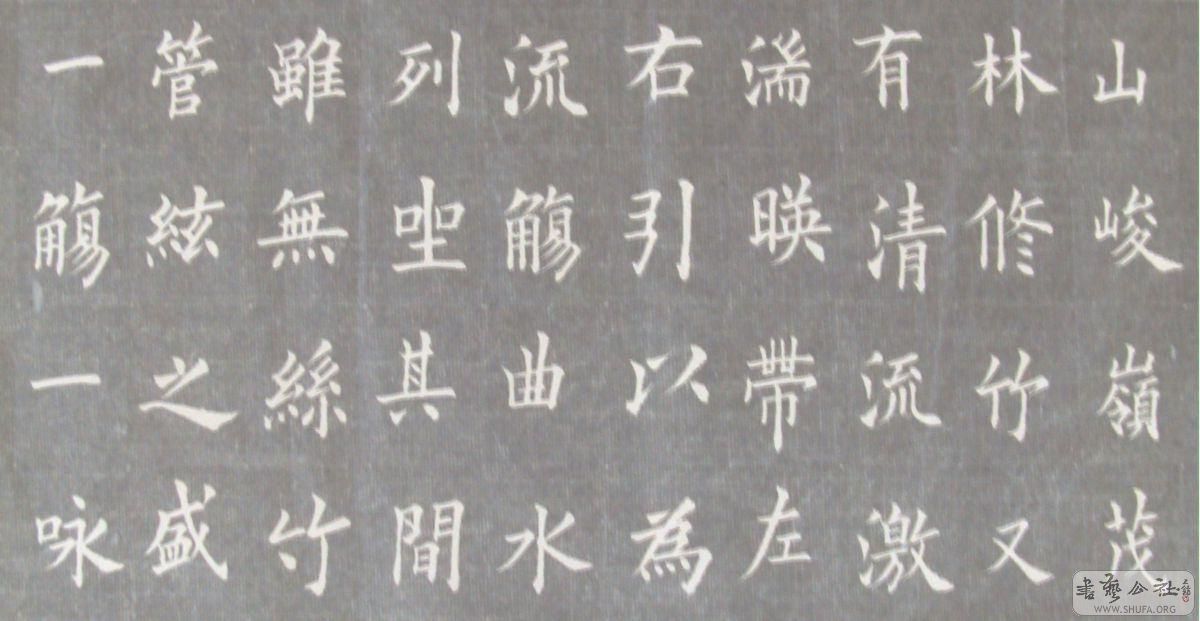 山峻嶺茂
林修竹又
有清流激
湍暎帶左
右引以為
流觴曲水
列坐其間
雖無絲竹
管絃之盛
一觴一咏
書藝公社
WWW.SHUFA.ORG